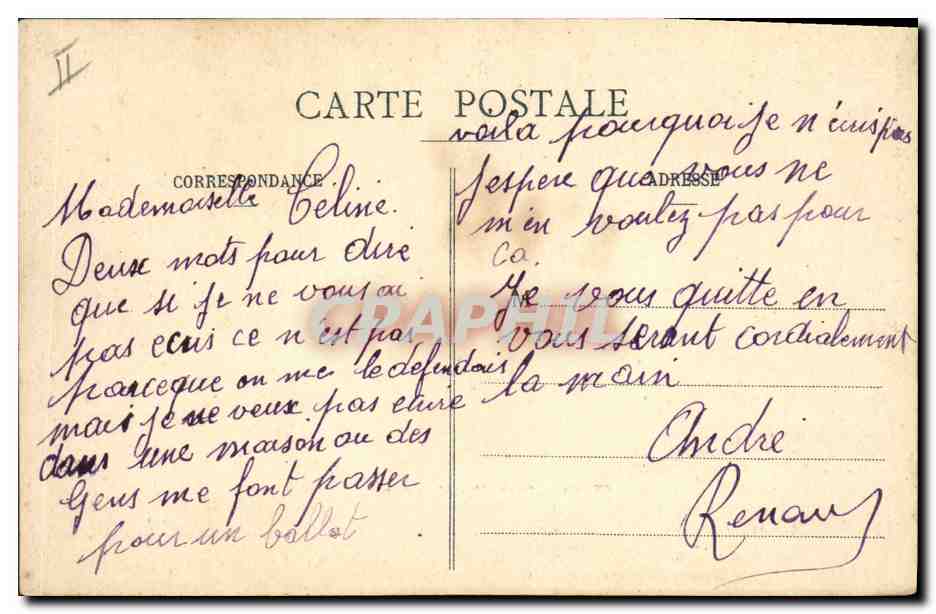 II
CARTE POSTALE
CORRESPONDANCE
Mademoiselle Céline.
Deux mots pour dire
que si je ne vous ai
pas ecris ce n'est pas
parceque on me le défendais
mais je ne veux pas ecrire
dans une maison ou des
Gens me font passer
pour un ballot
voila pourquoi je n'écris pas
ADRESSE
J'espere que vous ne
m'en voulez pas pour
ca.
Je vous quitte en
vous serant cordialement
la main
André
Renaud
CPAPHIL